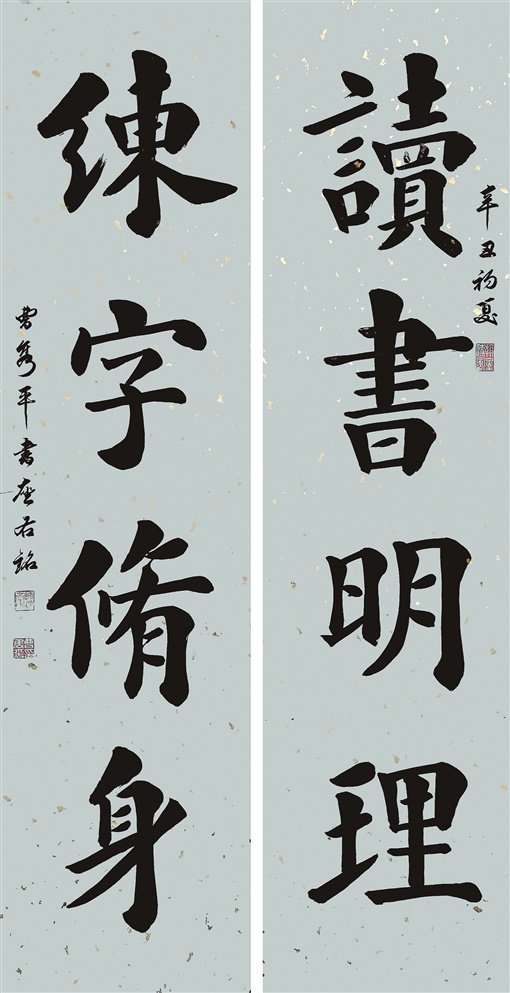 讀書明理
辛丑初夏
練字脩身
曹隽平書座右銘